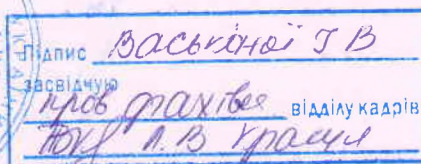 Підпис Васькіної І В
засвідчую
пров фахівець відділу кадрів
Л.В